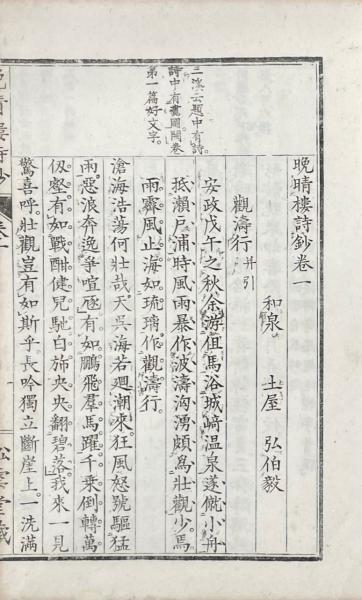 三溪云題中有詩。
詩中有畫。開卷
第一篇好文字。
晚晴樓詩鈔卷一
和泉 土屋 弘伯毅
觀濤行 并引
安政戊午之秋余游但馬浴城崎温泉遂僦小舟
抵瀨戶浦時風雨暴作波濤洶湧頗爲壯觀少焉
雨霽風止海如琉璃作觀濤行
滄海浩蕩何壯哉天吳海若廻潮來狂風怒號驅猛
雨惡浪奔逸爭喧豗有如鵬飛羣馬躍千乘倒轉萬
仭壑有如戰酣健兒馳白旆央央翻碧落我來一見
驚喜呼壯觀豈有如斯乎長吟獨立斷崖上一洗滿
晚晴樓詩鈔 卷一 松雲堂藏